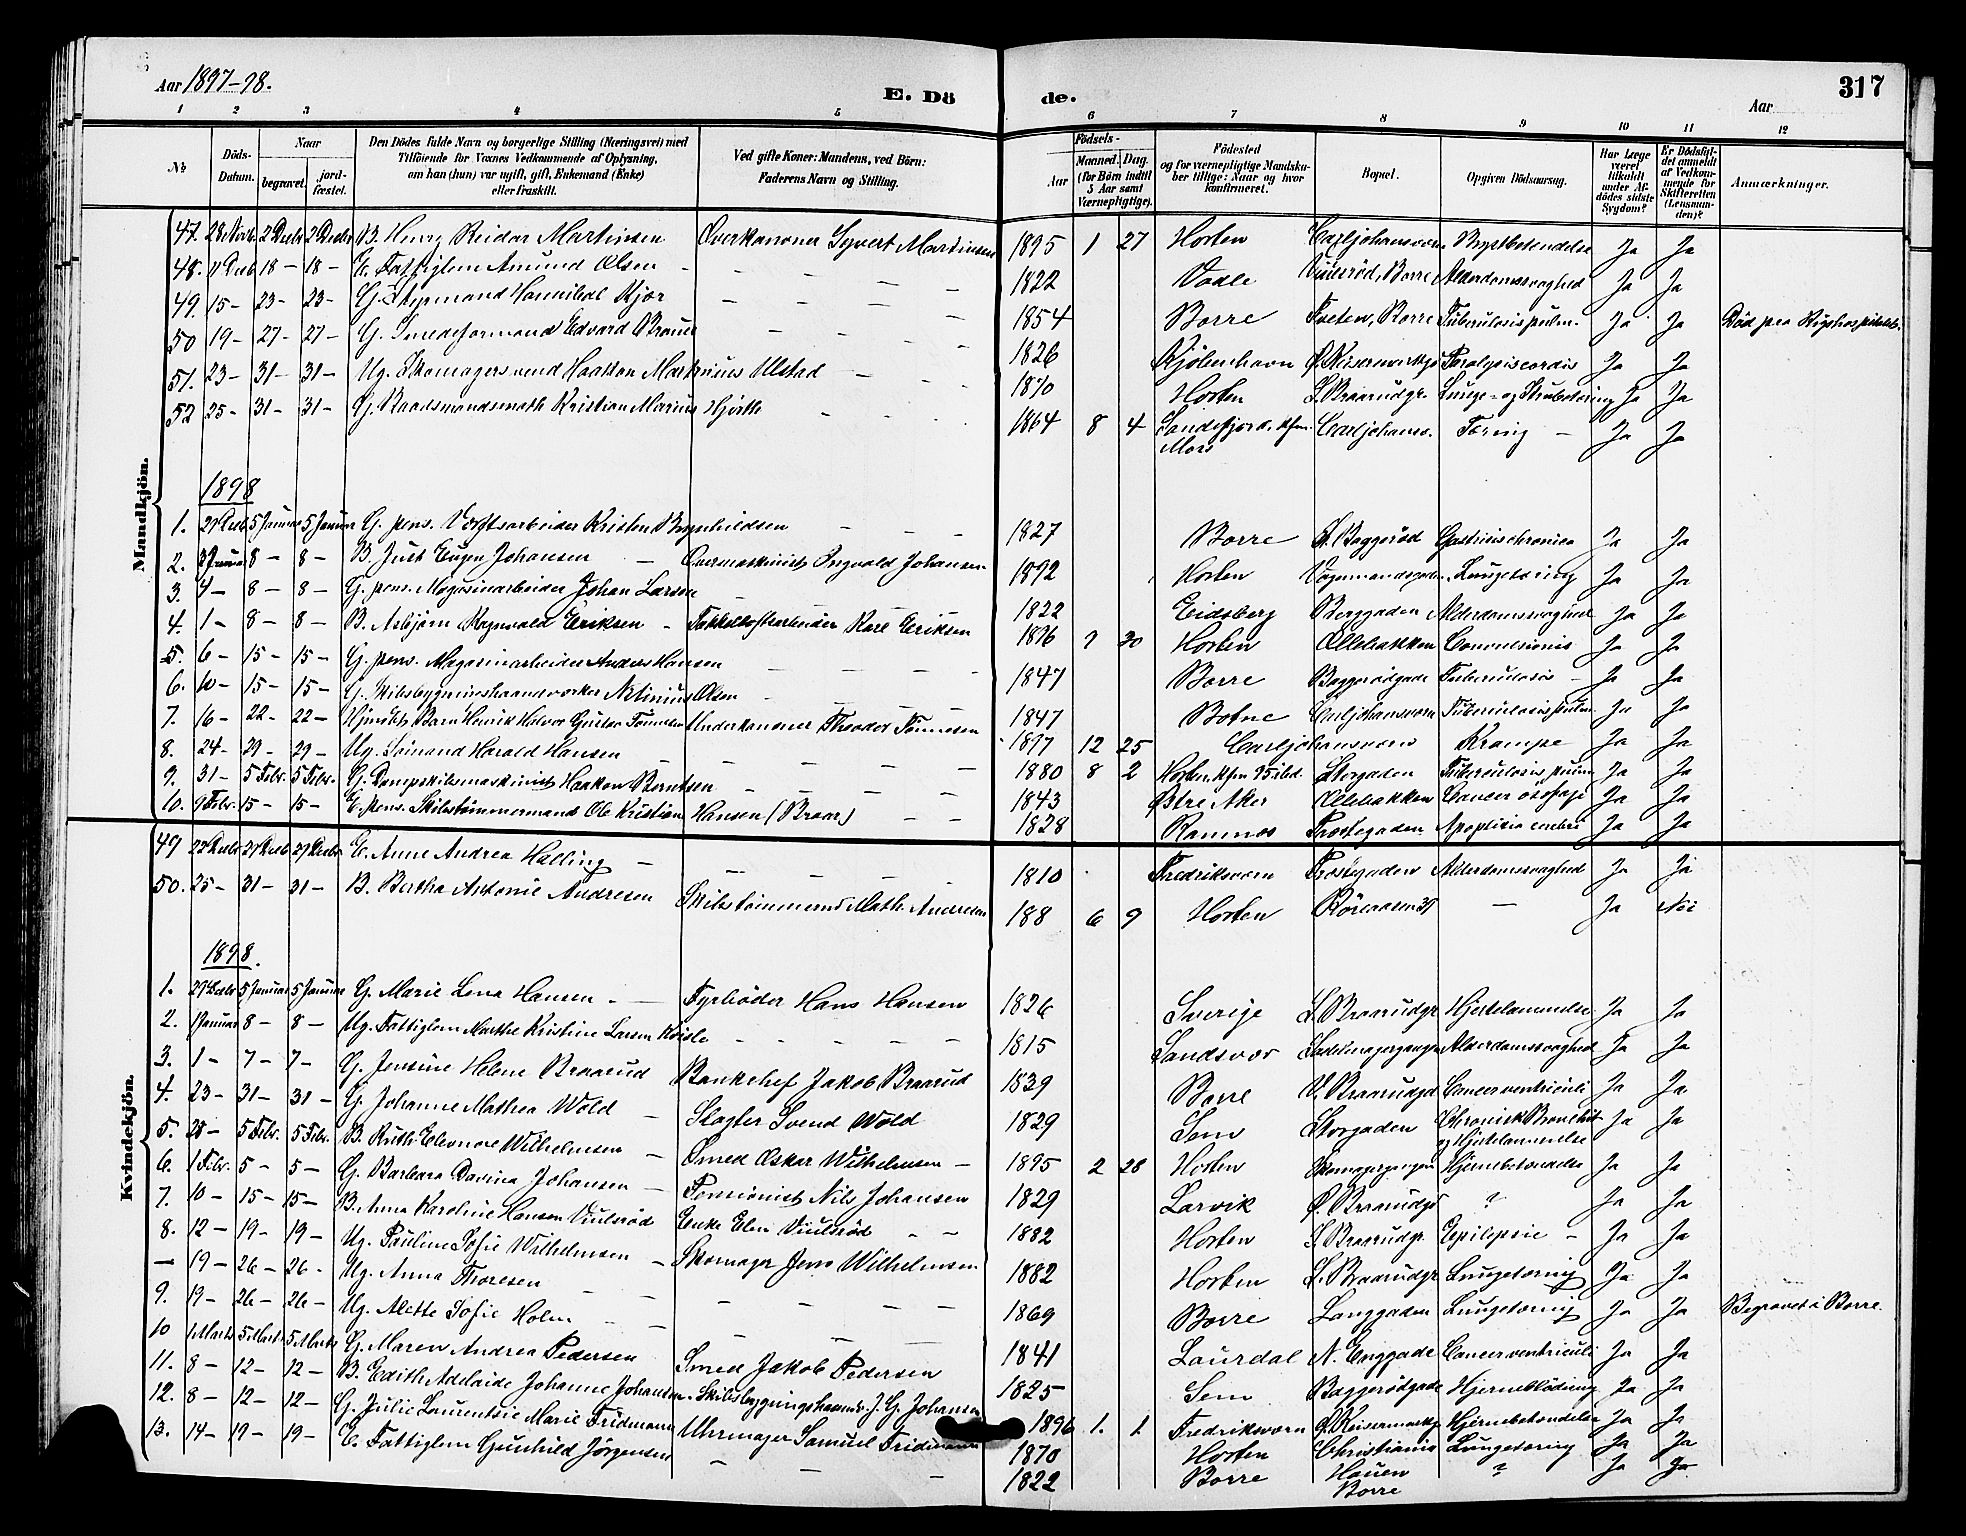 Aar 1897-98.
E. Dö de.
Aar
317
1 2 3 4 5 6 7 8 9 10 11 12
No
Döds-Datum.
Naar
begravet. jordfæstet.
Den Dödes fulde Navn og borgerlige Stilling (Næringsvei) med
Tilföiende for Voxnes Vedkommende af Oplysning,
om han (hun) var ugift, gift, Enkemand (Enke)
eller fraskilt.
Ved gifte Koner: Mandens, ved Börn:
Faderens Navn og Stilling.
Födsels-
Aar
Maaned. Dag.
(for Börn indtil
5 Aar samt
Værnepligtige).
Födested
og for værnepligtige Mandskaber tillige: Naar og hvor
konfirmeret.
Bopæl.
Opgiven Dödsaarsag.
Har Læge
været
tilkaldt
under Afdödes sidste
Sygdom?
Er Dödsfaldet anmeldt
af Vedkommende for
Skifteretten
(Lensmanden)?
Anmærkninger.
Mandkjön.
47. 28 Novb. 2 Decbr 2 Decbr B. Henry Reidar Martinsen Overkanoner Syvert Martinsen 1895 1 27 Horten Carljohansværn Brystbetendelse Ja Ja
48. 11 Decb 18 - 18 - E. Fattiglem Amund Olsen - - - 1822 Vaale Viulsrød, Borre Alderdomssvaghed Ja Ja
49. 15 - 23 - 23 - G. Styrmand Hannibal Kjær - - - 1854 Borre Tveten, Borre Tuberculosis pulm. Ja Ja Død paa Rigshospitalet.
50 19 - 27 - 27 - G. Smedeformand Edvard Brauer - - 1826 Kjöbenhavn Ø. Keisermarkgd Paralysis cordis Ja Ja
51. 23 - 31 - 31 - Ug. Skomagersvend Haakon Markinius Ulstad - - 1870 Horten S. Braarudgr. Lunge- og Strubetæring Ja Ja
52 25 - 31 - 31 - G. Baadsmandsmath Kristian Marius Hjorth - - 1864 8 4 Sandefjord, kfm. Moss Carljohansv. Tæring - Ja Ja
1898
1. 27 Decb. 5 Januar 5 Januar G. pens. Værftsarbeider Kristen Brynhildsen - - 1827 Borre N. Baggerød Gastritis chronica Ja Ja
2. 3 Januar 8 - 8 - B. Just Eugen Johansen - Overmaskinist Ingvald Johansen 1892 Horten Vognmandsgaden Lungetæring Ja Ja
3. 4 - 8 - 8 - G. pens. Magasinarbeider Johan Larsen - - 1822 Eidsberg Berggaden Alderdomssvaghed Ja Ja
4. 1 - 8 - 8 - B. Asbjørn Ragnvald Eriksen - Takkelloftsarbeider Karl Eriksen 1896 7 30 Horten Øllebakken Convulsionis Ja Ja
5. 6 - 15 - 15 - G. pens. Magasinarbeider Anders Hansen - - - 1847 Borre Baggerødgade Tuberculosis - Ja Ja
6. 10 - 15 - 15 - G. Skibsbygningshaandværker Netinius Olsen - - - 1847 Botne Carljohansværn Tuberculosis pulm. Ja Ja
7. 16 - 22 - 22 - Hjemdøbt Barn Henrik Halvor Gustav Tønnesen Underkanoner Theodor Tønnesen 1897 12 25 Carljohansværn Krampe Ja Ja
8. 24 - 29 - 29 - Ug. Sømand Harald Hansen - - - 1880 8 2 Horten, kfm 95 ibd. Storgaden Tuberculosis pulm Ja Ja
9. 31 - 5 Febr. 5 Febr. G. Dampskibsmaskinist Haakon Berntsen - - - 1843 Østre Aker Øllebakken Cancer øsofagi Ja Ja
10. 9 Febr. 15 - 15 - E. pens. Skibstømmermand Ole Kristian Hansen (Braar) - - 1828 Ramnes Prostegaden Apoplexia cerebri Ja Ja
Kvindekjön.
49 22 Decbr 27 Decb 27 Decbr E. Anne Andrea Halling - - - 1810 Fredriksværn Prostegaden Alderdomssvaghed Ja Ja
50. 25 - 31 - 31 - B. Bertha Antonie Andresen Skibstømmermd Math. Andresen 188 6 9 Horten Røreaasen 37 - Ja Nei
1898.
1. 29 Decbr 5 Januar 5 Januar G. Marie Lena Hansen - - Fyrbøder Hans Hansen 1826 Sverige S. Braarudgr Hjertelammelse Ja Ja
2. 1 Januar 8 - 8 - Ug. Fattiglem Marthe Kristine Larsen - - - 1815 Sandsvær Sadelmagergangen Alderdomssvaghed Ja Ja
3. 1 - 7 - 7 - G. Jensine Helene Braarud Bankchef Jakob Braarud 1839 Borre V. Braarudgd Cancer ventriculi Ja Ja
4. 23 - 31 - 31 - G. Johanne Mathea Wold - Slagter Svend Wold 1829 Sem Storgaden Chronisk Bronchit og Hjertelammelse Ja Ja
5. 28 - 5 Febr. 5 Febr. B. Ruth Eleonore Wilhelmsen - Smed Oskar Wilhelmsen - 1895 2 28 Horten Skomagergangen Hjernebetændelse Ja Ja
6. 1 Febr. 5 - 5 - G. Barbara Davina Johansen - Pensionist Nils Johansen 1829 Larvik Ø. Braarudgd ? Ja Ja
7. 10 - 15 - 15 - B. Anna Karoline Hansen Viulsrød Enke Elen Viulsrød - - 1882 Horten S. Braarudgr. Epilepsie - Ja Ja
8. 12 - 19 - 19 - Ug. Pauline Sofie Wilhelmsen - Skomager Jens Wilhelmsen 1882 Horten S. Braarudgr Lungetæring Ja Ja
- 19 - 26 - 26 - Ug. Anna Thoresen - - - 1869 Borre Langgaden Lungetæring Ja Ja Begravet i Borre.
9. 19 - 26 - 26 - Ug. Alette Sofie Holm - - - 1841 Laurdal N. Enggade Cancer ventriculi Ja Ja
10 1 Marts 5 Marts 5 Marts G. Maren Andrea Pedersen Smed Jakob Pedersen 1825 Sem Baggerødgade Hjerneblödning Ja Ja
11. 8 - 12 - 12 - B. Edith Adelaide Johanne Johansen Skibsbygningshaandv. J. G. Johansen 1896 1. 1 Fredriksværn Ø. Keisermarkgr Hjernebetændelse Ja Ja
12. 8 - 12 - 12 - G. Julie Laurentsie Marie Fridmann Uhrmager Samuel Fridmann 1870 Horten Christiania Lungetæring Ja Ja
13. 14 - 19 - 19 - E. Fattiglem Gunhild Jørgensen - - - 1822 Borre Hauen Borre ? Ja Ja